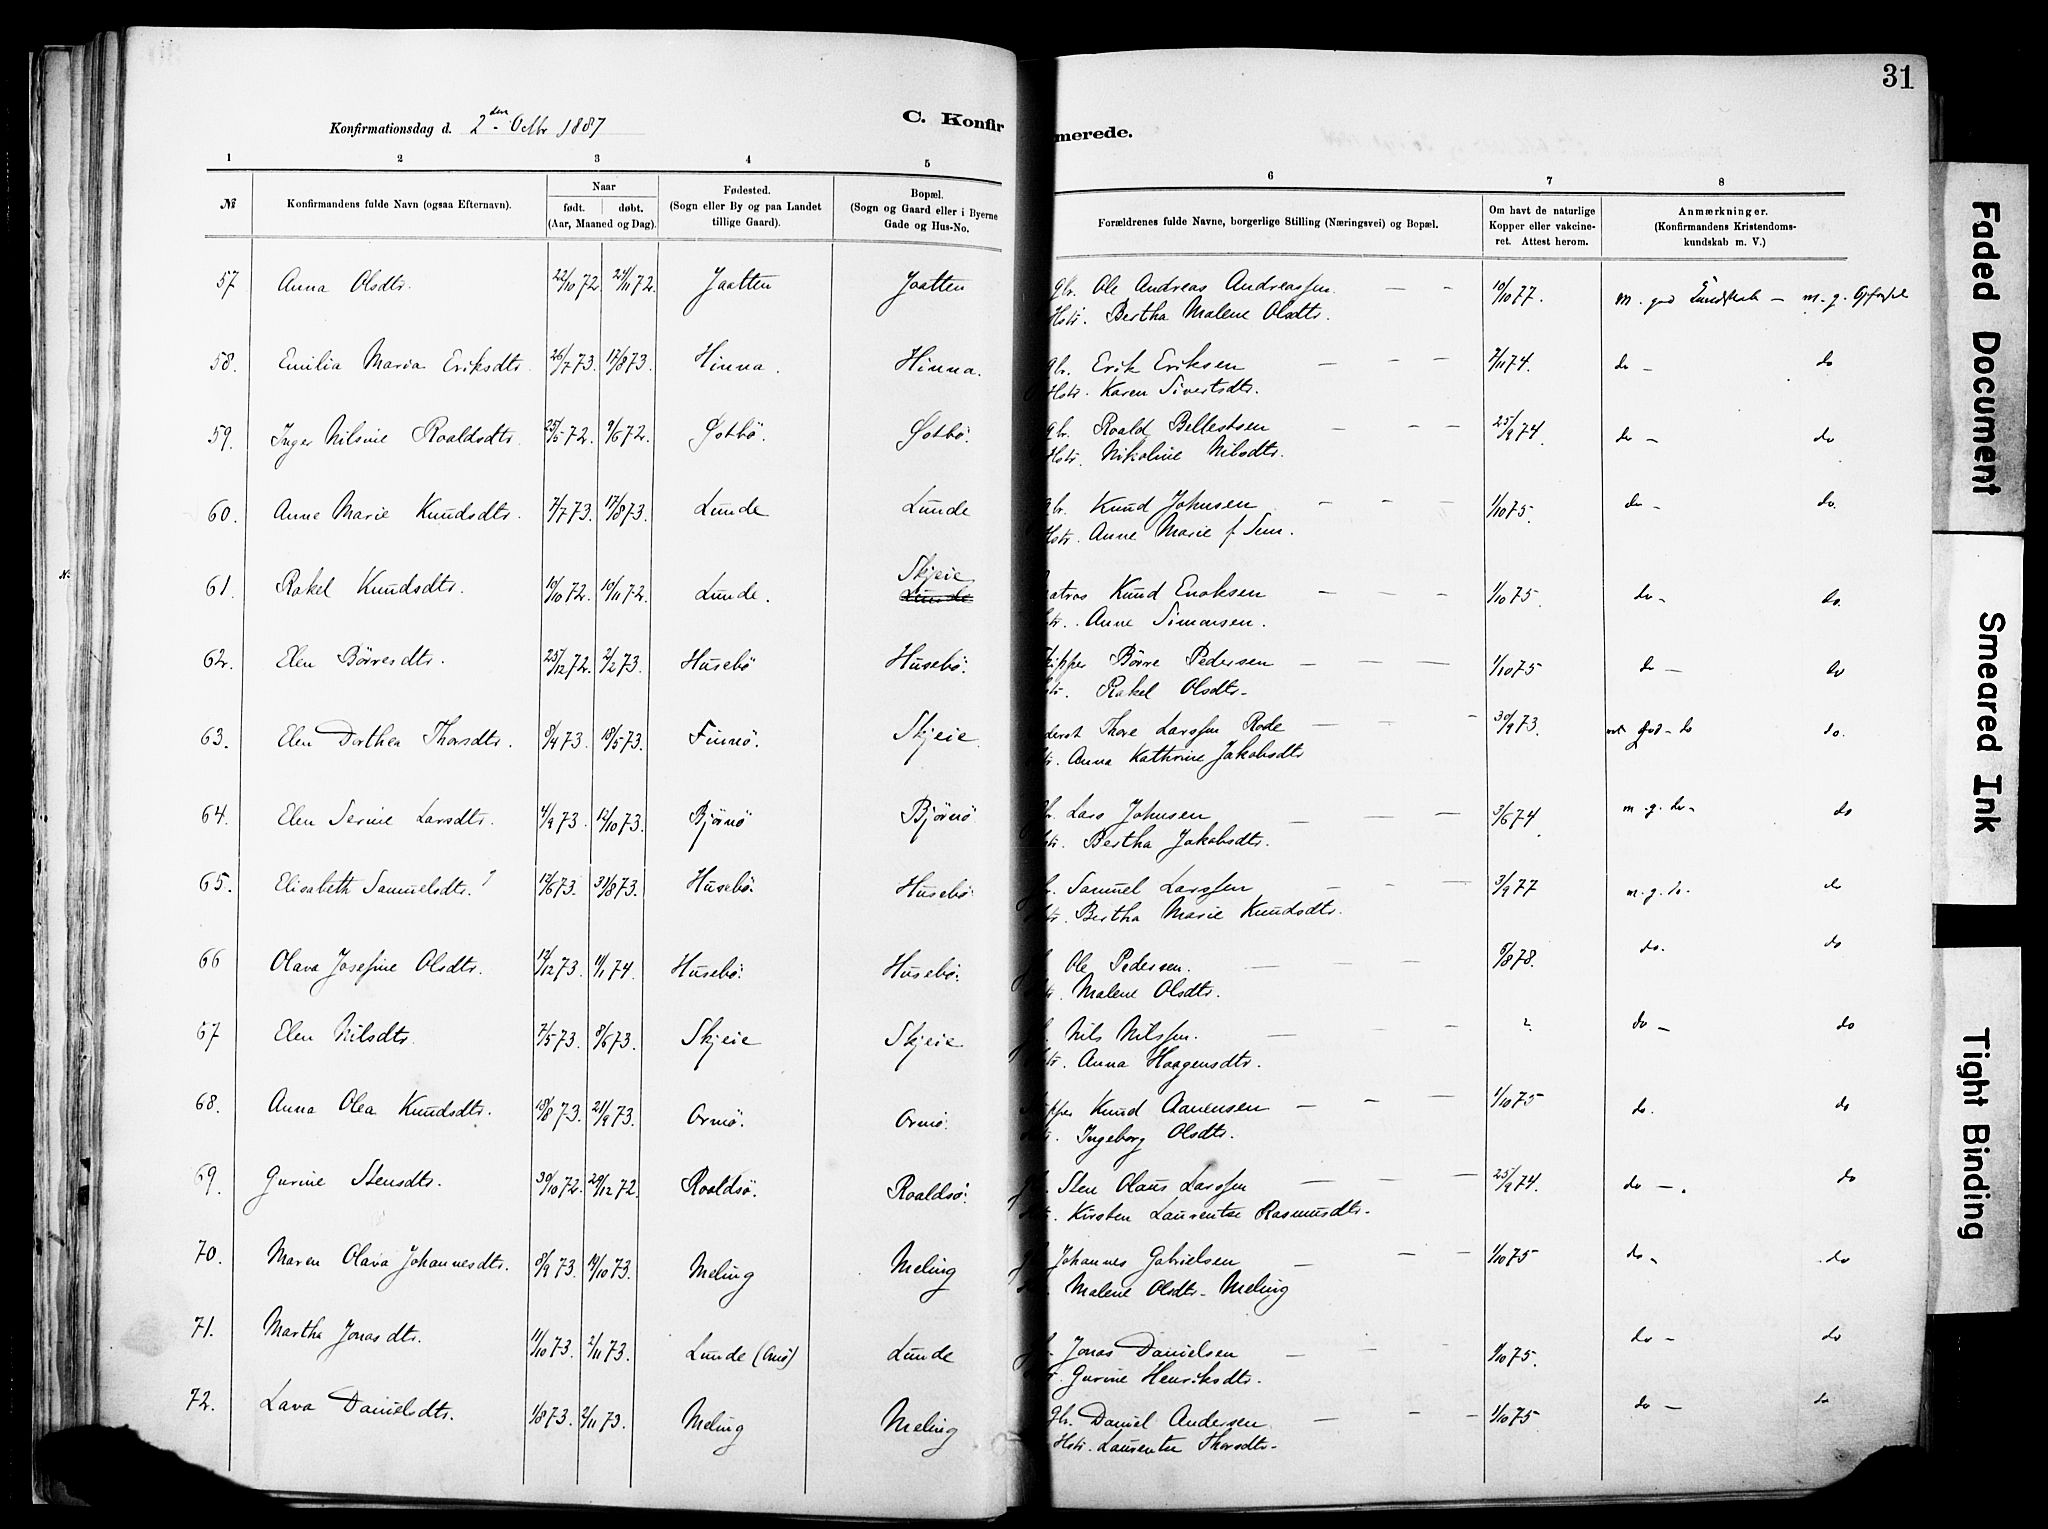 31
Konfirmationsdag d. 2den Octbr 1887
C. Konfirmerede.
1 2 3 4 5 6 7 8
№ Konfirmandens fulde Navn (ogsaa Efternavn). Naar født. døbt. (Aar, Maaned og Dag). Fødested. (Sogn eller By og paa Landet tillige Gaard). Bopæl. (Sogn og Gaard eller i Byerne Gade og Hus-No. Forældrenes fulde Navne, borgerlige Stilling (Næringsvei) og Bopæl. Om havt de naturlige Kopper eller vakcineret. Attest herom. Anmærkninger. (Konfirmandens Kristendomskundskab m. V.)
57 Anna Olsdtr. 22/10 72. 24/11 72. Jaatten Jaatten Gbr. Ole Andreas Andreassen. — — 10/10 77. M. god Kundskab — m. g. Opførsel
Hstr. Bertha Malene Olsdtr.
58. Emilia Maria Eriksdtr. 26/7 73. 17/8 73. Hinna. Hinna. Gbr. Erik Eriksen — — — 7/11 74. do — do
Hstr. Karen Sivertsdtr.
59. Inger Nilsine Roaldsdtr. 25/5 72. 9/6 72. Østbø. Østbø. Gbr. Roald Bellestsen — — — 25/9 74. do — do
Hstr. Nikoline Nilsdtr.
60. Anne Marie Knudsdtr. 7/7 73. 17/8 73. Lunde Lunde Gbr. Knud Johnsen — — — 1/10 75. do — do.
Hstr. Anne Marie f. Sem.
61. Rakel Knudsdtr. 10/10 72. 10/11 72. Lunde. Skjeie Lunde atros Knud Enoksen — — — 1/10 75. do — do.
Hstr. Anne Simonsen.
62. Elen Børresdtr. 25/12 72. 2/2 73. Husebø Husebø. kipper Børre Pedersen — — — 1/10 75 do — do
Hstr. Rakel Olsdtr.
63. Elen Dorthea Thorsdtr. 8/4 73. 18/5 73. Finnø. Skjeie. derst Thore Larssen Rode — — 30/9 73. god — do.
Hstr. Anna Kathrine Jakobsdtr
64. Elen Serine Larsdtr. 4/9 73. 12/10 73. Bjørnø Bjørnø Gbr. Lars Johnsen — — — 3/6 74 m. g. do — do
Hstr. Bertha Jakobsdtr.
65. Elisabeth Samuelsdtr. 12/6 73. 31/8 73. Husebø. Husebø. Gbr. Samuel Larssen — — — 3/9 77 m. g. do. do
Hstr. Bertha Marie Knudsdtr.
66 Olava Josefine Olsdtr. 12/12 73. 11/1 74. Husebø. Husebø. Gbr. Ole Pedersen. — — — 6/8 78. do. do
Hstr. Malene Olsdtr.
67 Elen Nilsdtr. 7/5 73. 8/6 73. Skjeie Skjeie Gbr. Nils Nilssen. — — — ? do — do
Hstr. Anna Haagensdtr.
68. Anna Olea Knudsdtr. 18/8 73. 21/9 73. Ormø. Ormø. kipper Knud Aanensen — — — 1/10 75 do. do
Hstr. Ingeborg Olsdtr.
69. Gurine Stensdtr. 30/10 72. 29/12 72. Roaldsø. Roaldsø. Gbr. Sten Olaus Larssen — — — 25/9 74. do —. do
Hstr. Kirsten Laurentse Rasmusdtr.
70. Maren Olava Johannesdtr. 8/9 73. 19/10 73. Meling Meling Gbr. Johannes Gabrielsen — — — 1/10 75 do — do
Hstr. Malene Olsdtr. Meling
71. Martha Jonasdtr. 11/10 73. 2/11 73. Lunde (Omø) Lunde Gbr. Jonas Danielsen — — — 1/10 75. do — do
Hstr. Gurine Henriksdtr.
72. Lava Danielsdtr. 1/8 73. 2/11 73. Meling Meling Gbr. Daniel Andersen — — — 1/10 75 do — do
Hstr. Laurentse Thorsdtr.
Faded Document
Smeared Ink
Tight Binding